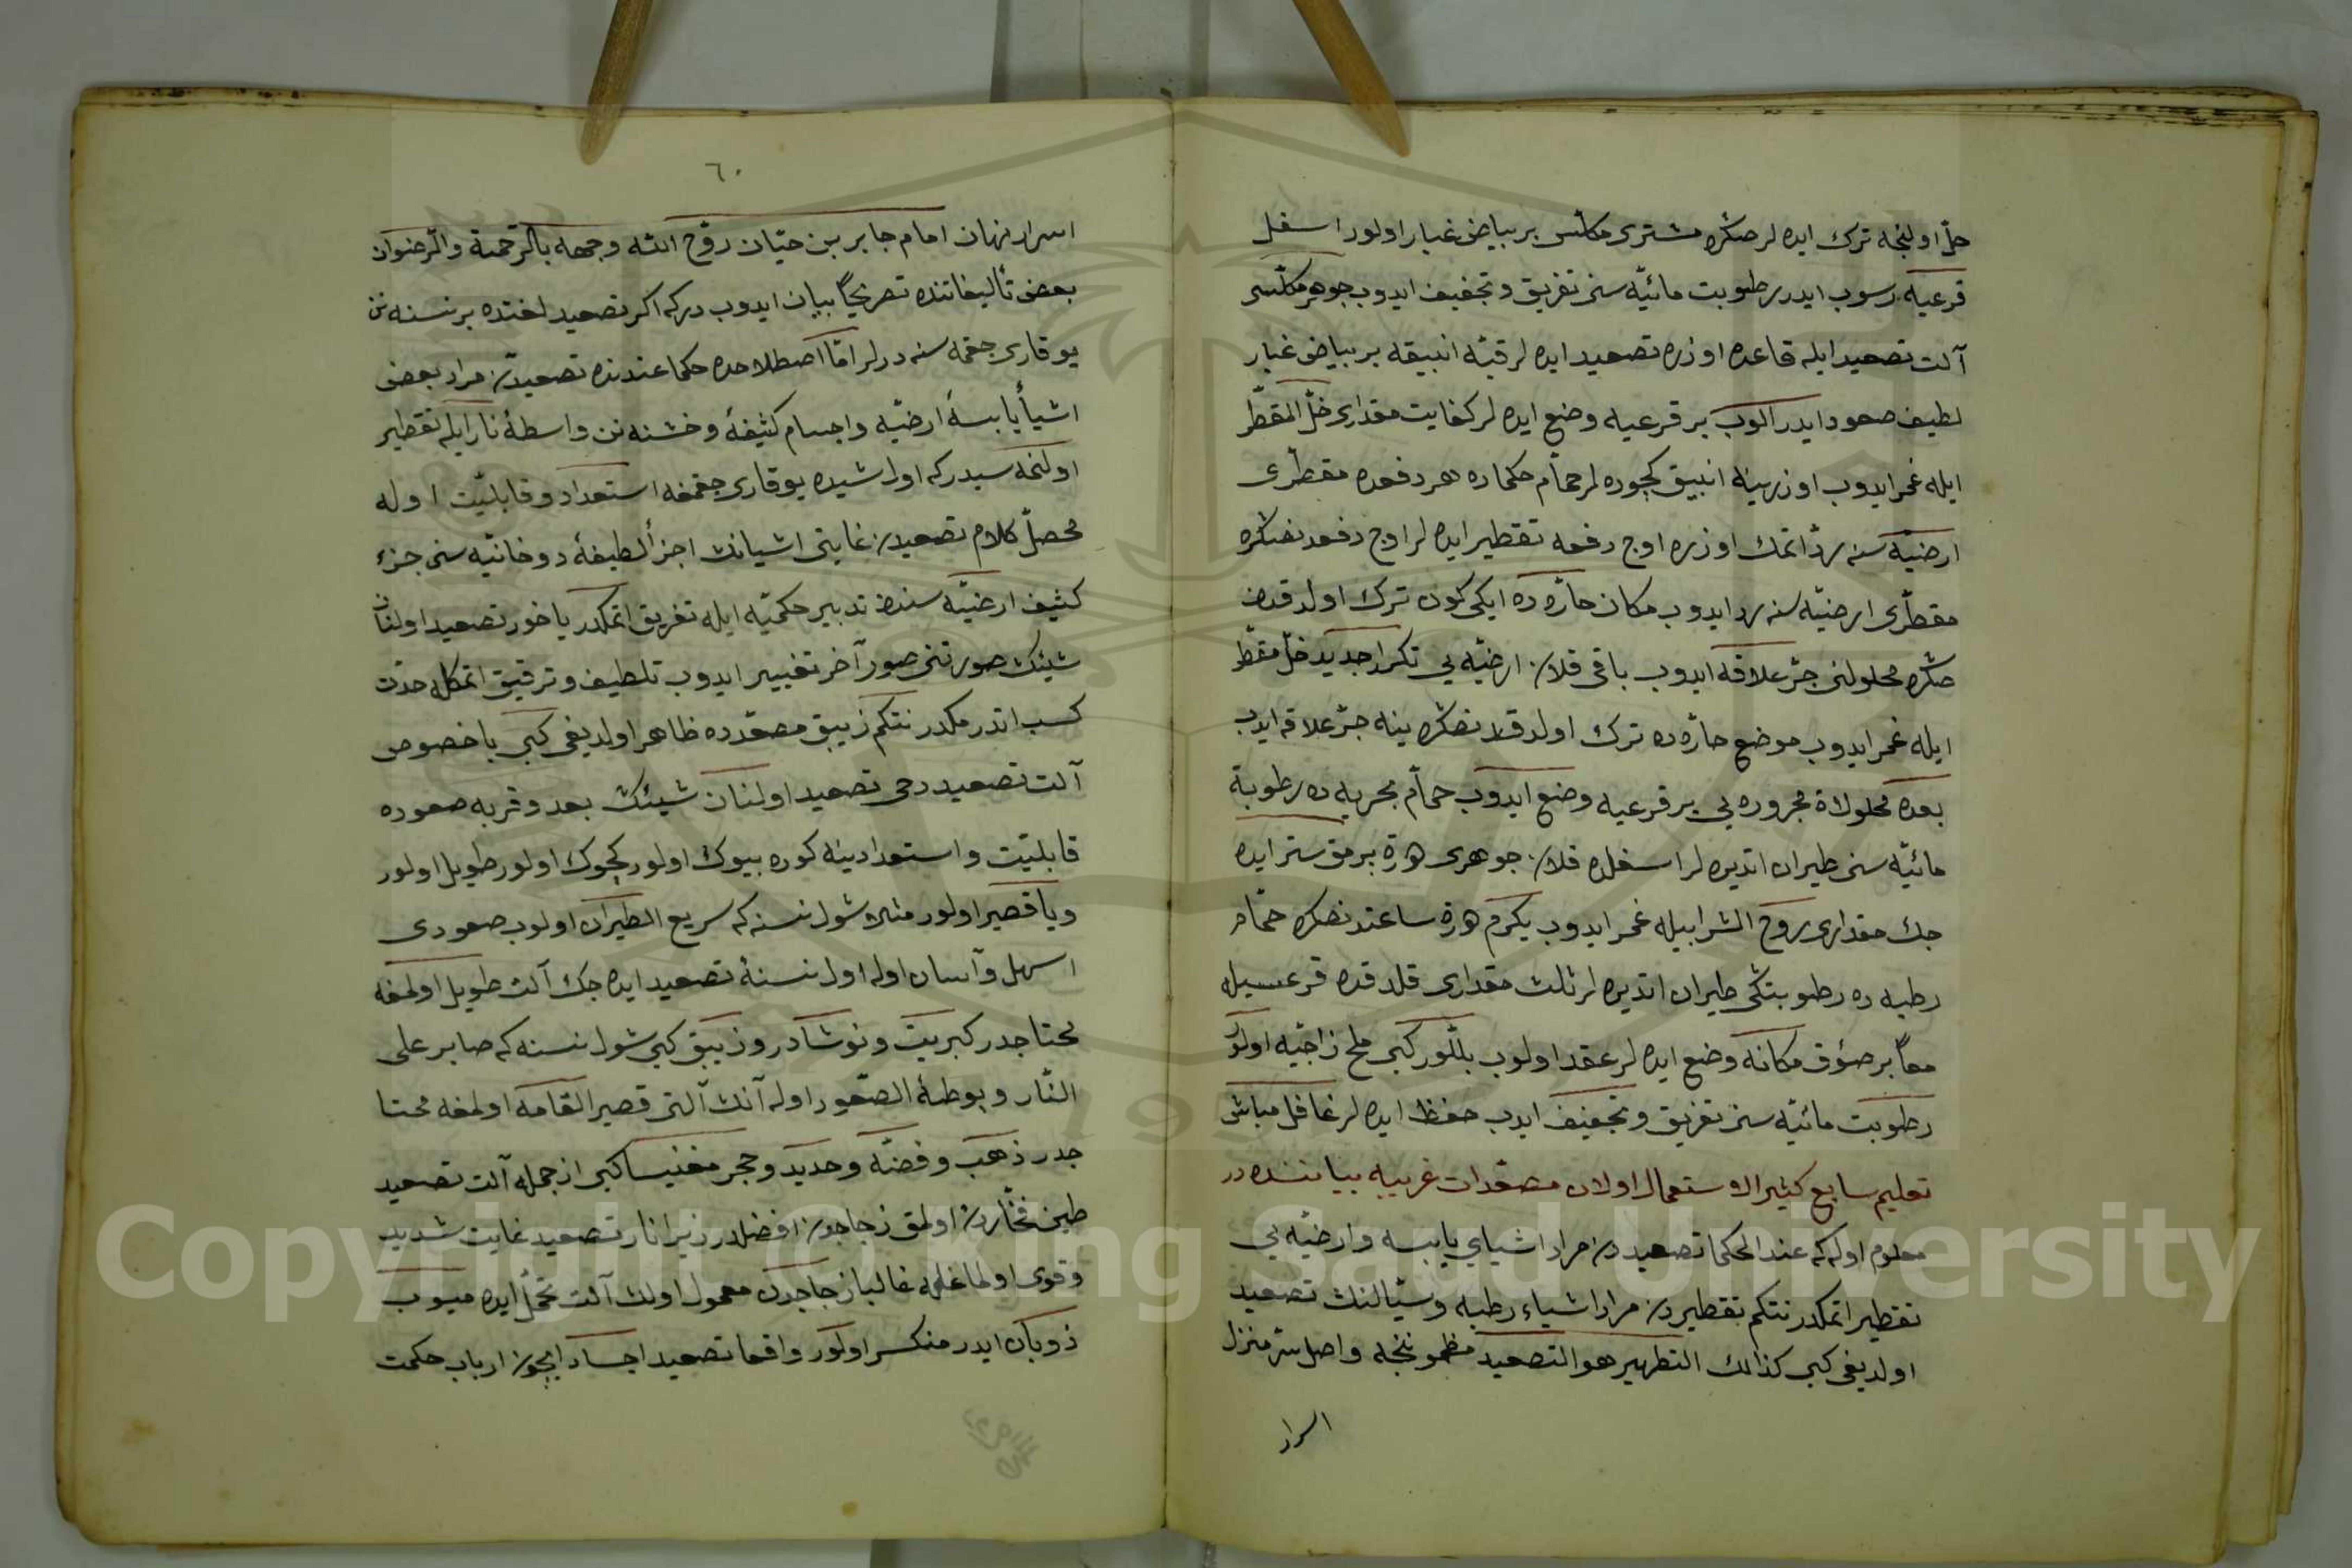 حلّ اولنجه ترك ايده لر صكره مشترى مكلّس بر بياض غبار اولور اسفل
قرعيه رسوب ايدر رطوبت مائيّه سنى تفريق و تجفيف ايدوب جوهر مكلّسى
آلت تصعيد ايله قاعده اوزره تصعيد ايده لر قبّه انبيقه بر بياض غبار
لطيف صعود ايدر آلوب بر قرعيه وضع ايده لر كفايت مقدارى خلّ المقطّر
ايله غمر ايدوب اوزرينه انبيق كچوره لر حمّام حكماده هر دفعده مقطّرى
ارضيّه سنه ردّ اتمك اوزره اوج دفعه تقطير ايده لر اوج دفعه دنصكره
مقطّرى ارضيّه سنه رد ايدوب مكان حارّه ده ايكى كون ترك اولندقدن
صكره محلولنى جرّ علاقه ايدوب باقى قلان ارضيّه يى تكرار جديد خلّ مقطّر
ايله غمر ايدوب موضع حارّه ده ترك اولندقدنصكره ينه جرّ علاقه ايدب
بعده محلولاة مجروره يى بر قرعيه وضع ايدوب حمّام بحريه ده رطوبة
مائيّه سنى طيران اتديره لر اسفلده قلان جوهرى هوره برمق ستر ايده
جك مقدارى روح الشراب ايله غمر ايدوب يكرم هوره ساعتدنصكره حمّام
رطبه ده رطوبتكى طيران اتديره لر ثلث مقدارى قلدقده قرعسيله
معاً بر صؤق مكانه وضع ايده لر عقد اولوب بلّور كبى ملح زاجيّه اولور
رطوبت مائيّه سنى تفريق و تجفيف ايدب حفظ ايده لر غافل مباش
تعليم سابع كثير الاستعمال اولان مصعّدات غريبه بياننده در
معلوم اوله كه عند الحكما تصعيددن مراد اشياى يابسه و ارضيّه يى
تقطير اتمكدر نتكم تقطيردن مراد اشياء رطبه و سيّالنك تصعيد
اولديغى كبى كذالك التطهير هو التصعيد مظمونجه واصل سّر منزل
اسرار
٦٠
اسرار نهان امام جابر بن حيّان روّح الله وجهه بالرّحمة والرّضوان
بعض تأليفاتنده تصريحاً بيان ايدوب دركه اكر تصعيد لغتده بر نسنه نن
يوقارى چقمه سنه درلر امّا اصطلاحده حكما عندنده تصعيددن مراد بعض
اشيأ يابسۀ ارضيّه و اجسام كثيفۀ و خشنه نن واسطۀ نار ايله تقطير
اولنمه سيدركه اول شيده يوقارى چقمغه استعداد و قابليّت اوله
محصلّ كلام تصعيددن غايتى اشيانك اجزألطيفۀ دوخانيّه سنى جزء
كثيف ارضيّه سندن تدبير حكميّه ايله تفريق اتمكدر ياخود تصعيد اولنان
شيئك صورتنى صور آخر تغيير ايدوب تلطيف و ترقيق اتمكله حدّت
كسب اتدرمكدر نتكم زيبق مصعّدده ظاهر اولديغى كبى باخصوص
آلت تصعيد دخى تصعيد اولنان شيئك بعد و قربه صعوده
قابليّت و استعدادينه كوره بيوك اولور كچوك اولور طويل اولور
ويا قصير اولور مثلا شول نسنه كه سريع الطيران اولوب صعودى
اسهل و آسان اوله اول نسنۀ تصعيد ايده جك آلت طويل اولمغه
محتاجدر كبريت و نوشادر و زيبق كبى شول نسنه كه صابر على
النّار و بوطئۀ الصّعور اوله آنك آلتى قصير القامه اولمغه محتا
جدر ذهب و فضّه و حديد و حجر مغنيسا كبى ازجمله آلت تصعيد
طين فخّاردن اولمق زجاجدن افضلدر زيرا نار تصعيد غايت شديد
و قوى اولماغله غالبا زجاجدن معمول اولان آلت تحمّل ايده ميوب
ذوبان ايدر منكسر اولور واقعا تصعيد اجساد ايچون ارباب حكمت
Copyright © King Saud University